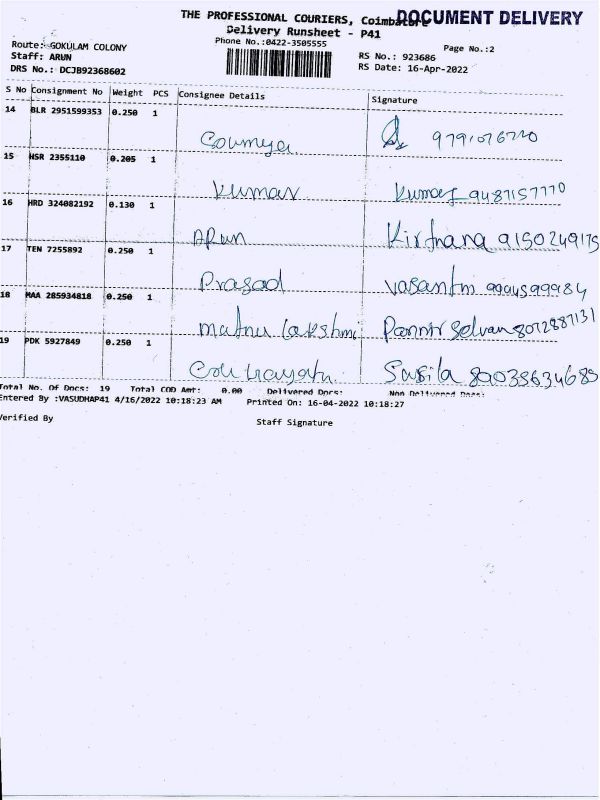 THE PROFESSIONAL COURIERS, Coimbatore
DOCUMENT DELIVERY
Delivery Runsheet - P41
Phone No.:0422-3505555
Page No.:2
Route: GOKULAM COLONY
Staff: ARUN
DRS No.: DCJB92368602
RS No.: 923686
RS Date: 16-Apr-2022
S No Consignment No Weight PCS Consignee Details Signature
14 BLR 2951599353 0.250 1
Soumya
15 HSR 2355110 0.205 1
Kumar Kumar 9487157770
16 HRD 324082192 0.130 1
ARun Kirthana
17 TEN 7255892 0.250 1
Prasad 9994599984
18 MAA 285934818 0.250 1
Lakshmi Pannir Selvan 8072887131
19 PDK 5927849 0.250 1
Susila
Total No. Of Docs: 19 Total COD Amt: 0.00 Delivered Docs: Non Delivered Docs:
Entered By :VASUDHAP41 4/16/2022 10:18:23 AM Printed On: 16-04-2022 10:18:27
Verified By Staff Signature